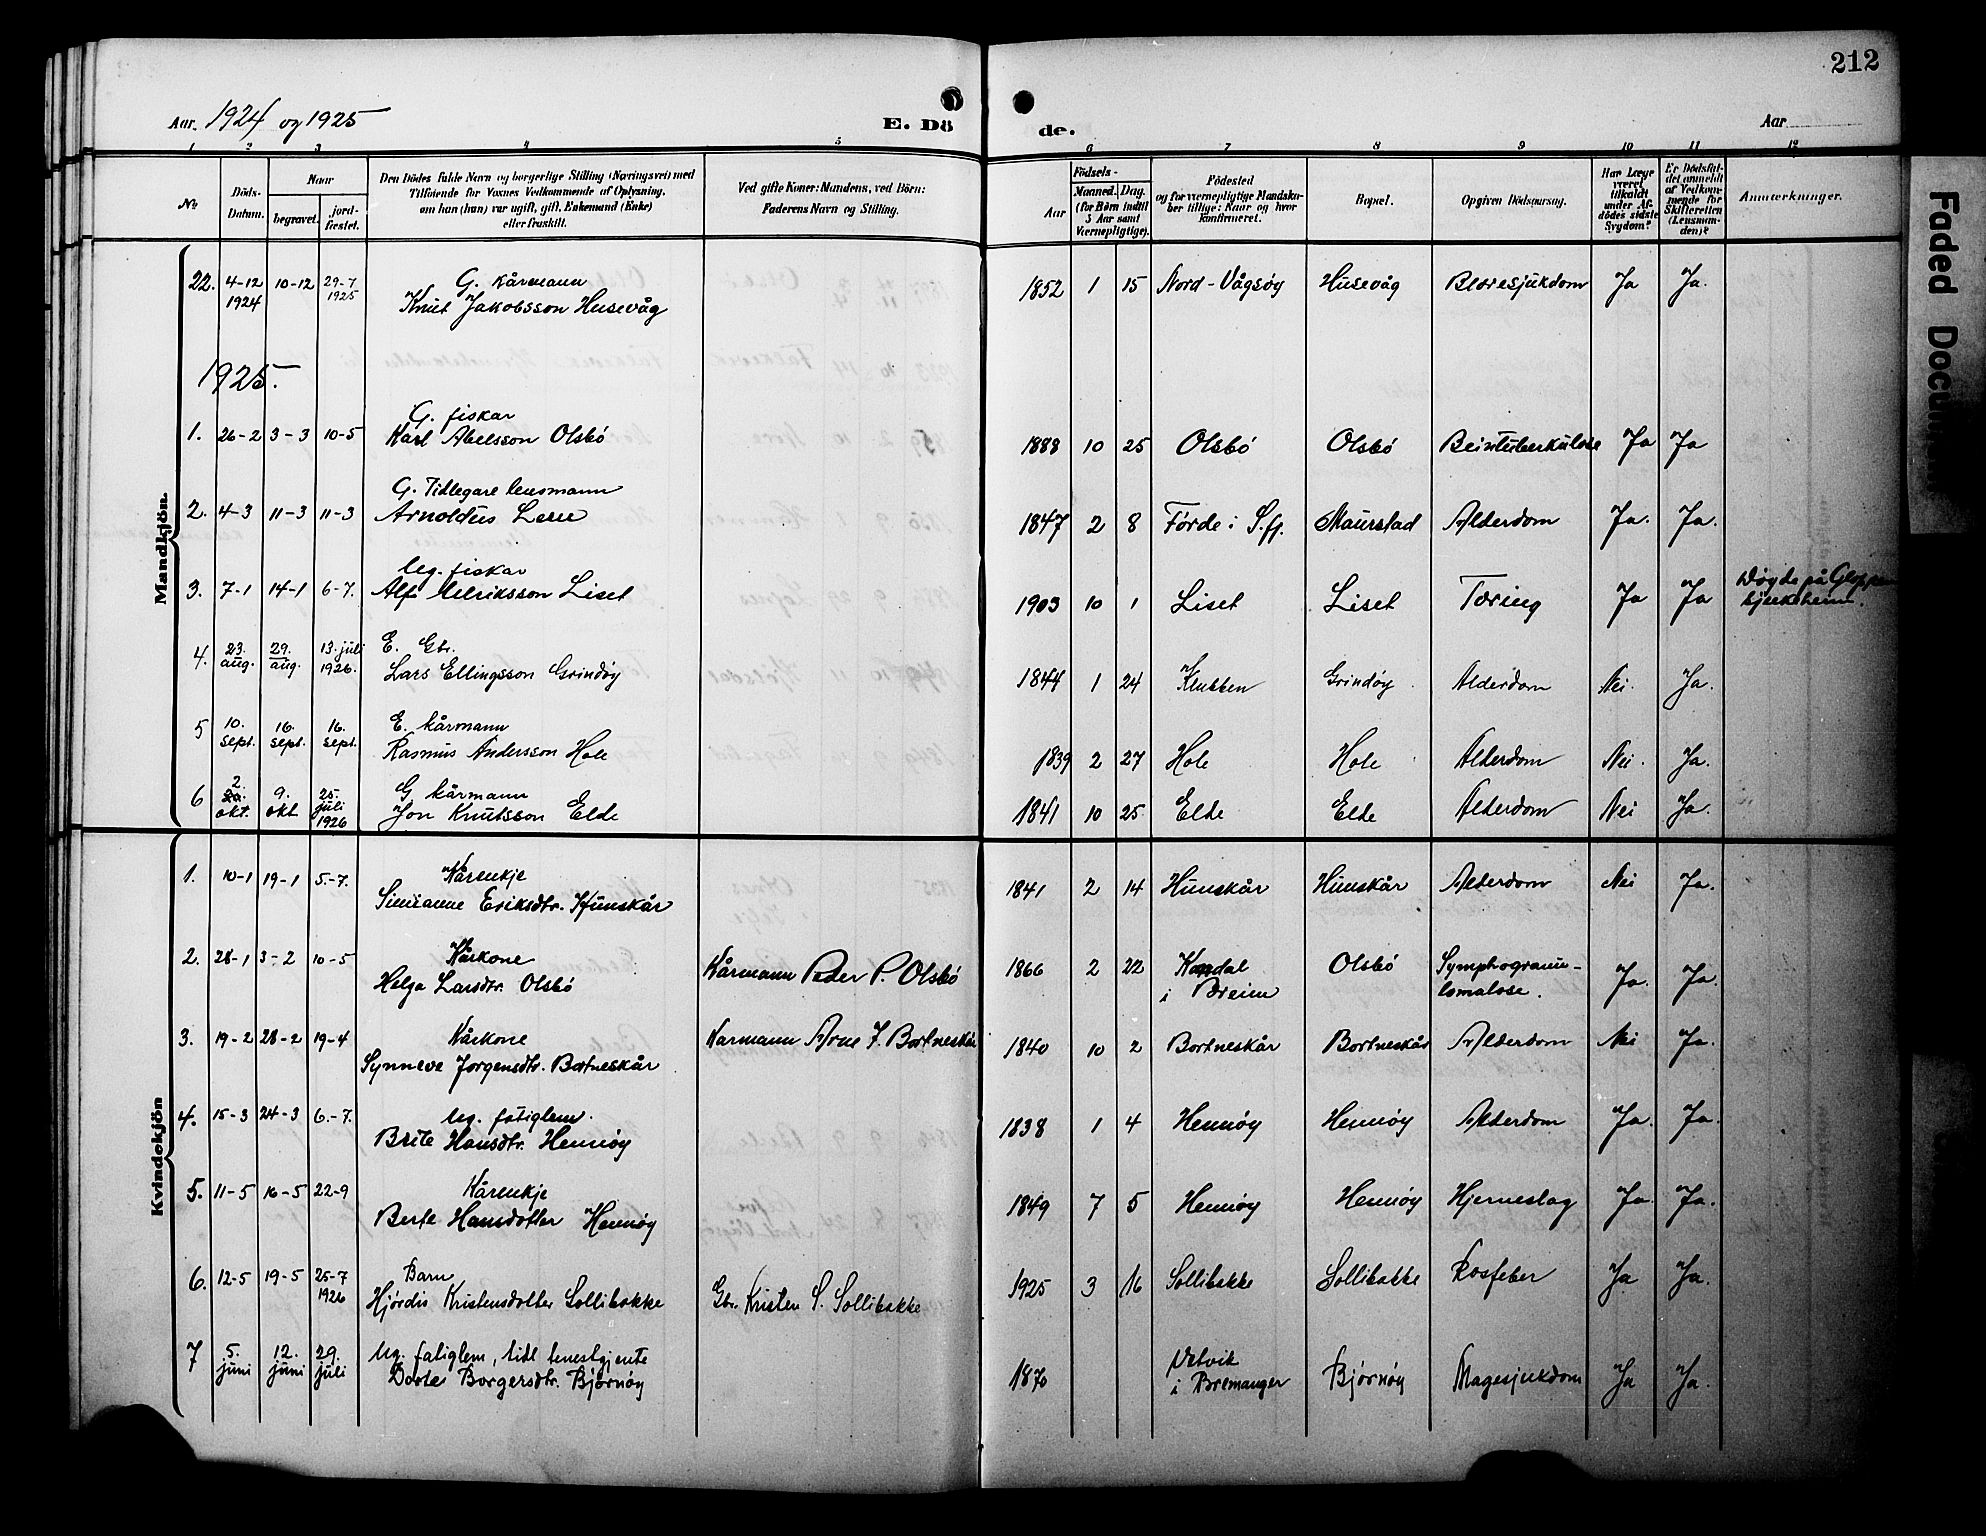 212
Aar. 1924 og 1925
E. Dö
de.
Aar
1 2 3 4 5 6 7 8 9 10 11 12
No
Döds-
Datum.
Naar
begravet.
jord-
fæstet.
Den Dödes fulde Navn og borgerlige Stilling (Næringsvei) med
Tilföiende for Voxnes Vedkommende af Oplysning,
om han (hun) var ugift, gift, Enkemand (Enke)
eller fraskilt.
Ved gifte Koner: Mandens, ved Börn:
Faderens Navn og Stilling.
Födsels-
Aar
Maaned. Dag.
(for Börn indtil
5 Aar samt
Værnepligtige).
Födested
og for værnepligtige Mandska-
ber tillige: Naar og hvor
konfirmeret.
Bopæl.
Opgiven Dödsaarsag.
Har Læge
været
tilkaldt
under Af-
dödes sidste
Sygdom?
Er Dödsfal-
det anmeldt
af Vedkom-
mende for
Skifteretten
(Lensman-
den)?
Anmærkninger.
Mandkjön.
22. 4-12 1924 10-12 29-7 1925 G. kårmann
Knut Jakobsson Husevåg 1852 1 15 Nord-Vågsøy Husevåg Blæresjukdom Ja Ja.
1925.
1. 26-2 3-3 10-5 G. fiskar
Karl Abelsson Olsbø 1888 10 25 Olsbø Olsbø Beintuberkulose Ja Ja
2. 4-3 11-3 11-3 G. Tidlegare lensmann
Arnoldus Leru 1847 2 8 Førde i S.fj. Maurstad Alderdom Ja. Ja.
3. 7-1 14-1 6-7. Ug. fiskar
Alf Melriksson Liset 1903 10 1 Liset Liset Tæring Ja Ja Døyde på
sjukeheim.
4. 23. aug. 29. aug. 13. juli 1926. E. Gbr.
Lars Ellingsson Grindøy 1844 1 24 Klubben Grindøy Alderdom Nei. Ja.
5 10. sept. 16. sept. 16. sept. E. kårmann
Rasmus Andersson Hole 1839 2 27 Hole Hole Alderdom Nei. Ja.
6 2. okt. 9. okt 25. juli 1926 G kårmann
Jon Knutsson Elde 1841 10 25 Elde Elde Alderdom Nei Ja.
Kvindekjön
1. 10-1 19-1 5.-7. Kårenkje
Simianne Eriksdtr. Hunskår 1841 2 14 Hunskår Hunskår Alderdom Nei Ja.
2. 28-1 3-2 10-5 Kårkone
Helga Larsdtr. Olsbø Kårmann Peder P. Olsbø 1866 2 22 Kandal
i Breim Olsbø Symphogranu-
lomatose. Ja. Ja.
3. 19-2 28-2 19-4 Kårkone
Synneve Jørgensdtr. Bortneskår Karmann Arne J. Bortneskår 1840 10 2 Bortneskår Bortneskår Alderdom Nei Ja.
4. 15-3 24-3 6.-7. Ug. fatiglem.
Brite Hansdtr. Hennøy 1838 1 4 Hennøy Hennøy Alderdom Ja. Ja.
5. 11-5 16-5 22-9 Kårenkje
Berte Hansdotter Hennøy 1849 7 5 Hennøy Hennøy Hjerneslag Ja. Ja.
6. 12-5 19-5 25-7 1926 Barn
Hjördis Kristensdotter Sollibakke Gbr. Kristen S. Sollibakke 1925 3 16 Sollibakke Sollibakke Rosfeber Ja Ja.
7 5. juni 12. juni 29. juli Ug. fatiglem, tidl tenestgjente
Dorte Borgersdtr. Bjørnøy 1870 Vetvik
i Bremanger Bjørnøy Magesjukdom Ja Ja.
Faded